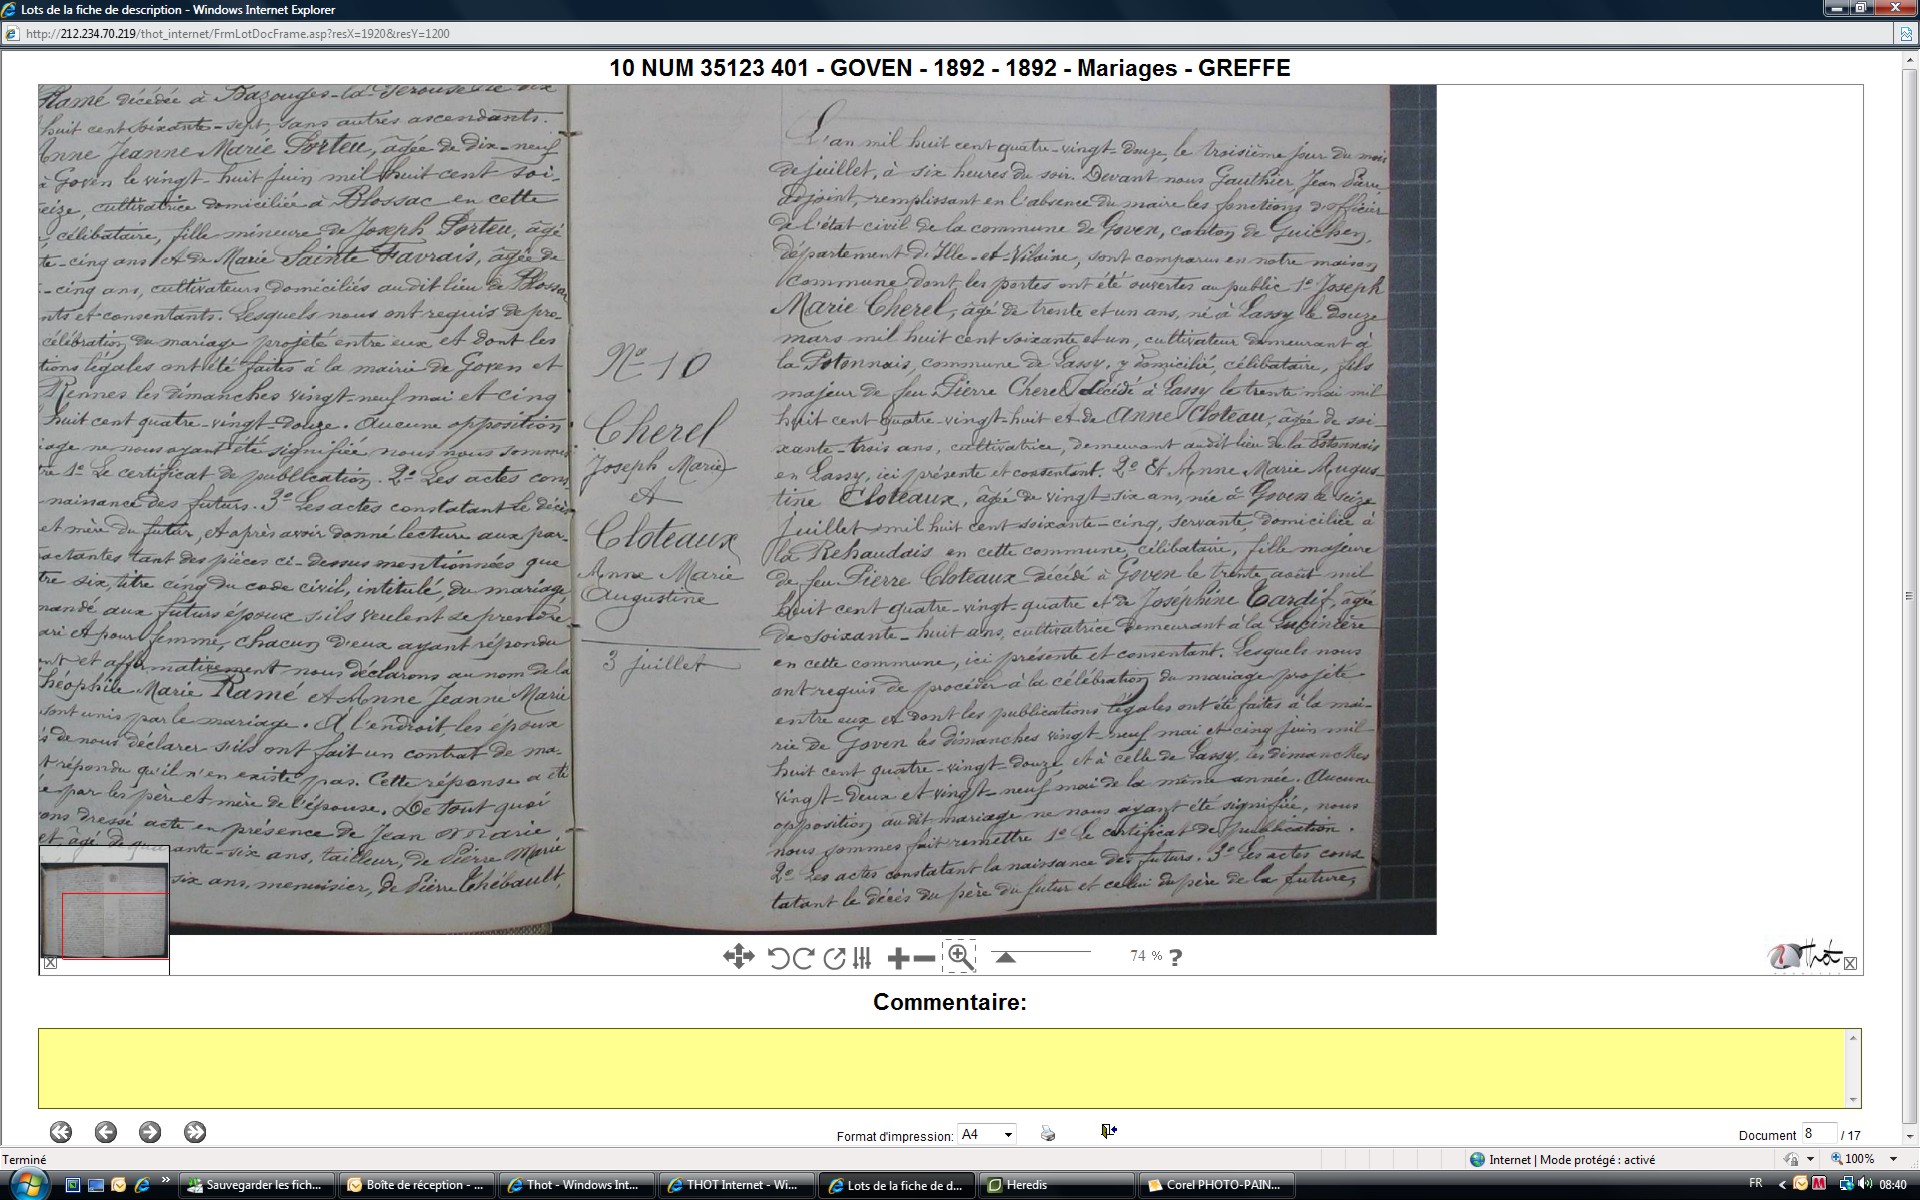 Lots de la fiche de description - Windows Internet Explorer
http://212.234.70.219/thot_internet/FrmLotDocFrame.asp?resX=1920&resY=1200
10 NUM 35123 401 - GOVEN - 1892 - 1892 - Mariages - GREFFE
Ramé décédée à Bazouges-la-Perouse le dix
huit cent soixante-sept, sans autres ascendants.
Anne Jeanne Marie Porteu, âgée de dix-neuf
à Goven le vingt-huit juin mil huit cent soi-
eize, cultivatrice domiciliée à Blossac en cette
, célibataire, fille mineure de Joseph Porteu, âgé
te-cinq ans et de Marie Sainte Favrais, âgée de
-cinq ans, cultivateurs domiciliés audit lieu de Blossac
nts et consentants. Lesquels nous ont requis de pro-
célébration du mariage projeté entre eux et dont les
tions légales ont été faites à la mairie de Goven et
Rennes les dimanches vingt-neuf mai et cinq
huit cent quatre-vingt-douze. Aucune opposition
iage ne nous ayant été signifiée nous nous sommes
tre 1º Le certificat de publication. 2º Les actes cons
naissance des futurs. 3º Les actes constatant le décès
et mère du futur, et après avoir donné lecture aux par-
actantes tant des pièces ci-dessus mentionnées que
tre six, titre cinq du code civil, intitulé, du mariage,
mandé aux futurs époux s'ils veulent se prendre
ari et pour femme, chacun d'eux ayant répondu
ent et affirmativement nous déclarons au nom de la
héophile Marie Ramé et Anne Jeanne Marie
sont unis par le mariage. A l'endroit, les époux
s de nous déclarer s'ils ont fait un contrat de ma-
t répondu qu'il n'en existe pas. Cette réponse a été
e par les père et mère de l'épouse. De tout quoi
ons dressé acte en présence de Jean Marie
et, âgé de quarante-six ans, tailleur, de Pierre Marie
six ans, menuisier, de Pierre Thébault,
Nº 10
Cherel
Joseph Marie
et
Cloteaux
Anne Marie
Augustine
3 juillet
L'an mil huit cent quatre-vingt-douze, le troisième jour du mois
de juillet, à six heures du soir. Devant nous Gauthier Jean Pierre
adjoint, remplissant en l'absence du maire les fonctions d'officier
de l'état civil de la commune de Goven, canton de Guichen,
département de Ille-et-Vilaine, sont comparus en notre maison
commune dont les portes ont été ouvertes au public 1º Joseph
Marie Cherel, âgé de trente et un ans, né à Lassy le douze
mars mil huit cent soixante et un, cultivateur demeurant à
la Potonnais, commune de Lassy, y domicilié, célibataire, fils
majeur de feu Pierre Cherel décédé à Lassy le trente mai mil
huit cent quatre-vingt-huit et de Anne Cloteau, âgée de soi-
xante-trois ans, cultivatrice, demeurant audit lieu de la Potonnais
en Lassy, ici présente et consentant. 2º Et Anne Marie Augus-
tine Cloteaux, âgée de vingt-six ans, née à Goven le seize
juillet mil huit cent soixante-cinq, servante, domiciliée à
la Rehaudais en cette commune, célibataire, fille majeure
de feu Pierre Cloteaux décédé à Goven le trente août mil
huit cent quatre-vingt-quatre et de Joséphine Tardif, âgée
de soixante-huit ans, cultivatrice demeurant à la Lupinière
en cette commune, ici présente et consentant. Lesquels nous
ont requis de procéder à la célébration du mariage projeté
entre eux et dont les publications légales ont été faites à la mai-
rie de Goven les dimanches vingt-neuf mai et cinq juin mil
huit cent quatre-vingt-douze et à celle de Lassy, les dimanches
vingt-deux et vingt-neuf mai de la même année. Aucune
opposition audit mariage ne nous ayant été signifiée, nous
nous sommes fait remettre 1º Le certificat de publication.
2º Les actes constatant la naissance des futurs. 3º Les actes cons
tatant le décès du père du futur et celui du père de la future,
74 % ?
Thot
Commentaire:
Format d'impression: A4
Document 8 / 17
Terminé
Internet | Mode protégé : activé
100%
Sauvegarder les fich...
Boîte de réception - ...
Thot - Windows Int...
THOT Internet - Wi...
Lots de la fiche de d...
Heredis
Corel PHOTO-PAIN...
FR
08:40